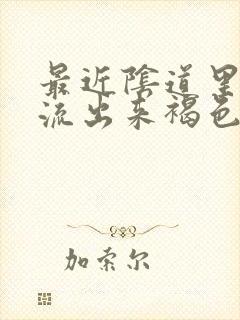 最近陰道里
流出来褐色
加索尔